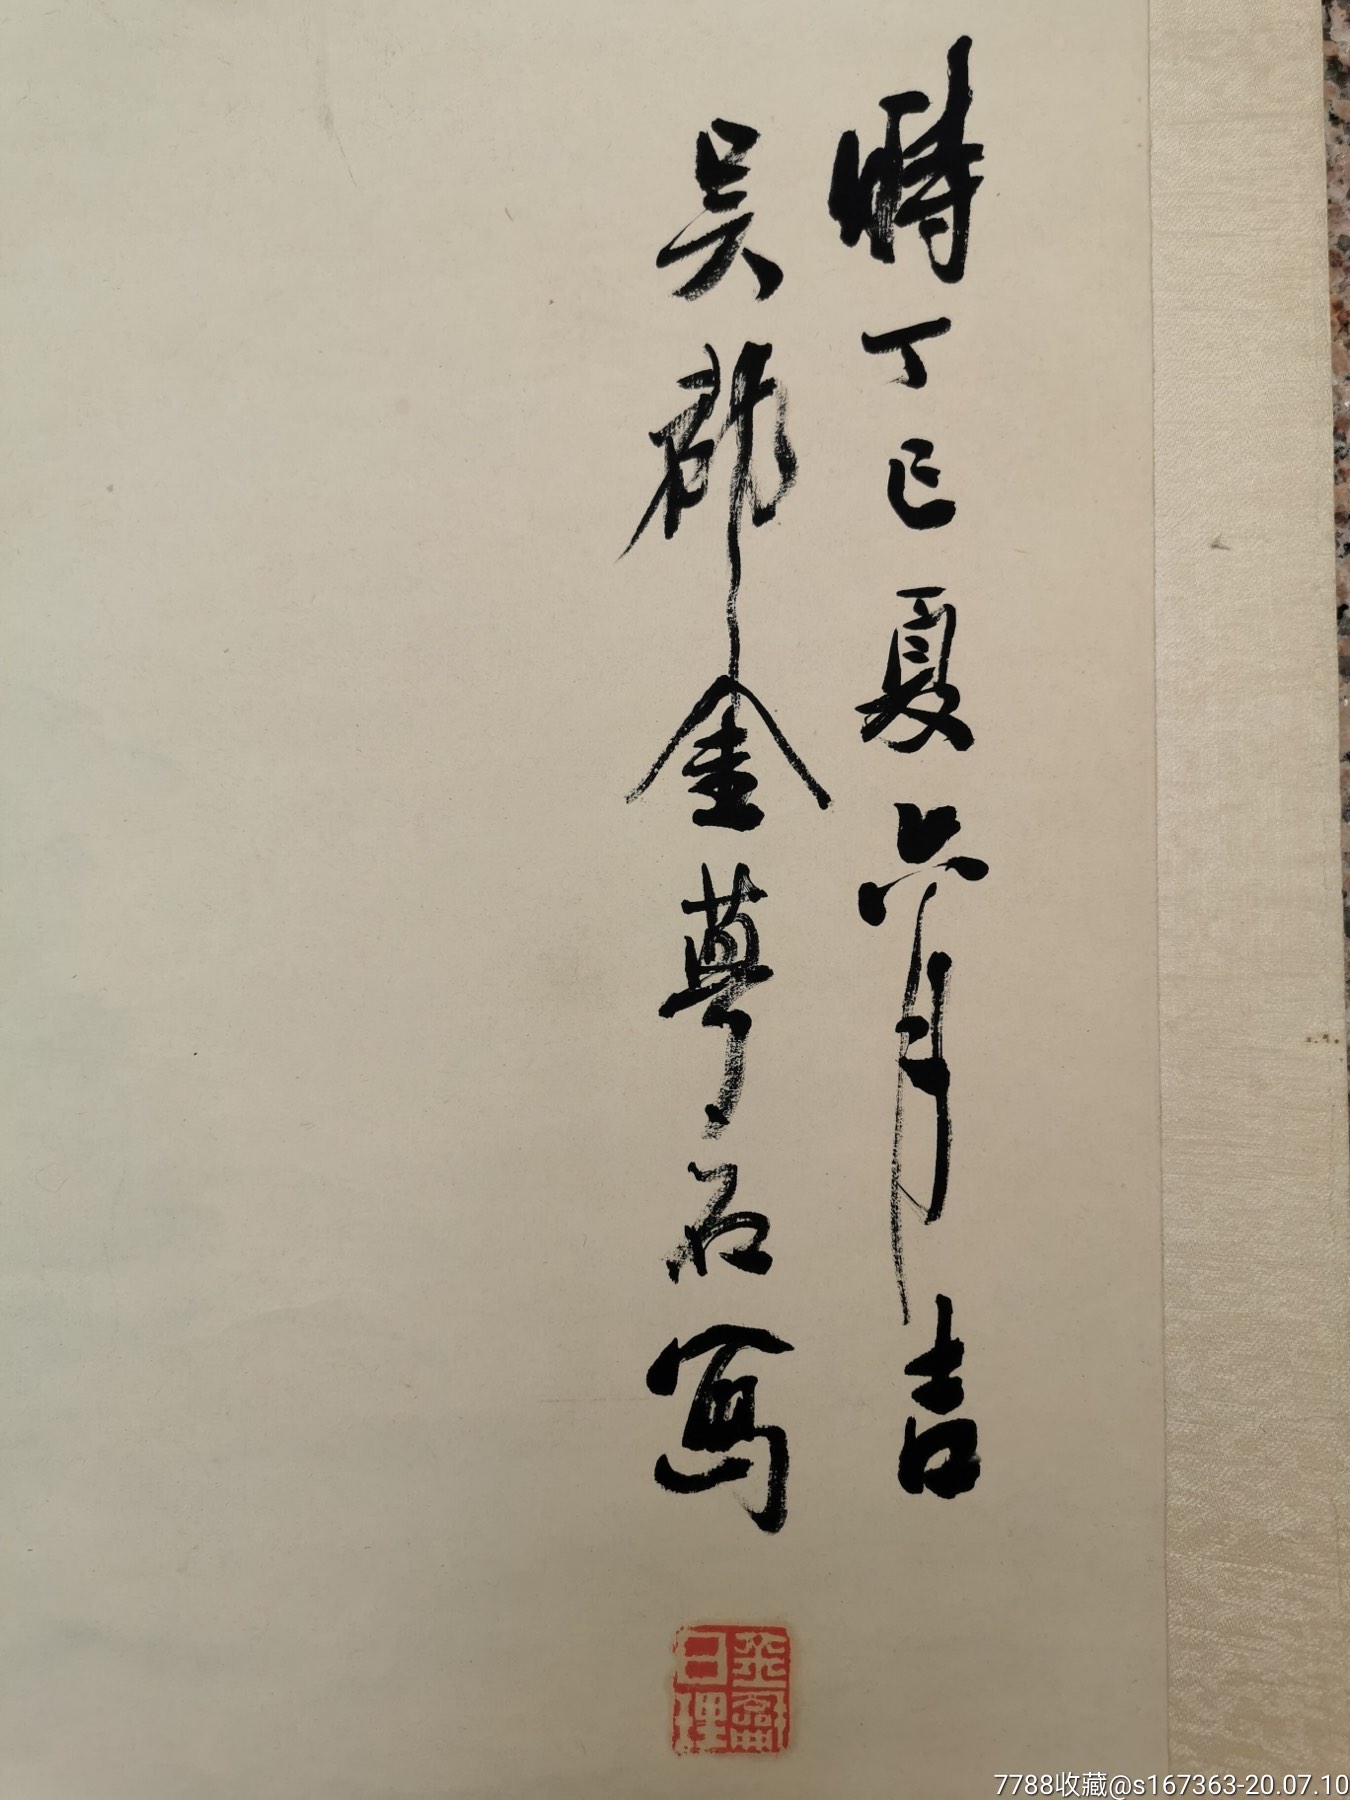 時丁巳夏六月吉
吳郡金蕚石寫
7788收藏@s167363-20.07.10